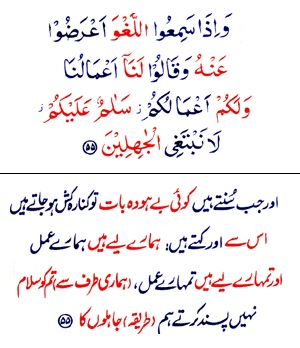 وَاِذَا سَمِعُوا اللَّغْوَ اَعْرَضُوْا
عَنْهُ وَقَالُوْا لَنَاۤ اَعْمَالُنَا
وَلَكُمْ اَعْمَالُكُمْ ز سَلٰمٌ عَلَيْكُمْ ز
لَا نَبْتَغِى الْجٰهِلِيْنَ ﴿۵۵﴾
اور جب سُنتے ہیں کوئی بے ہودہ بات تو کنارہ کش ہو جاتے ہیں
اس سے اور کہتے ہیں: ہمارے لیے ہیں ہمارے عمل
اور تمہارے لیے ہیں تمہارے عمل، (ہماری طرف سے) تم کو سلام
نہیں پسند کرتے ہم (طریقہ) جاہلوں کا ﴿۵۵﴾